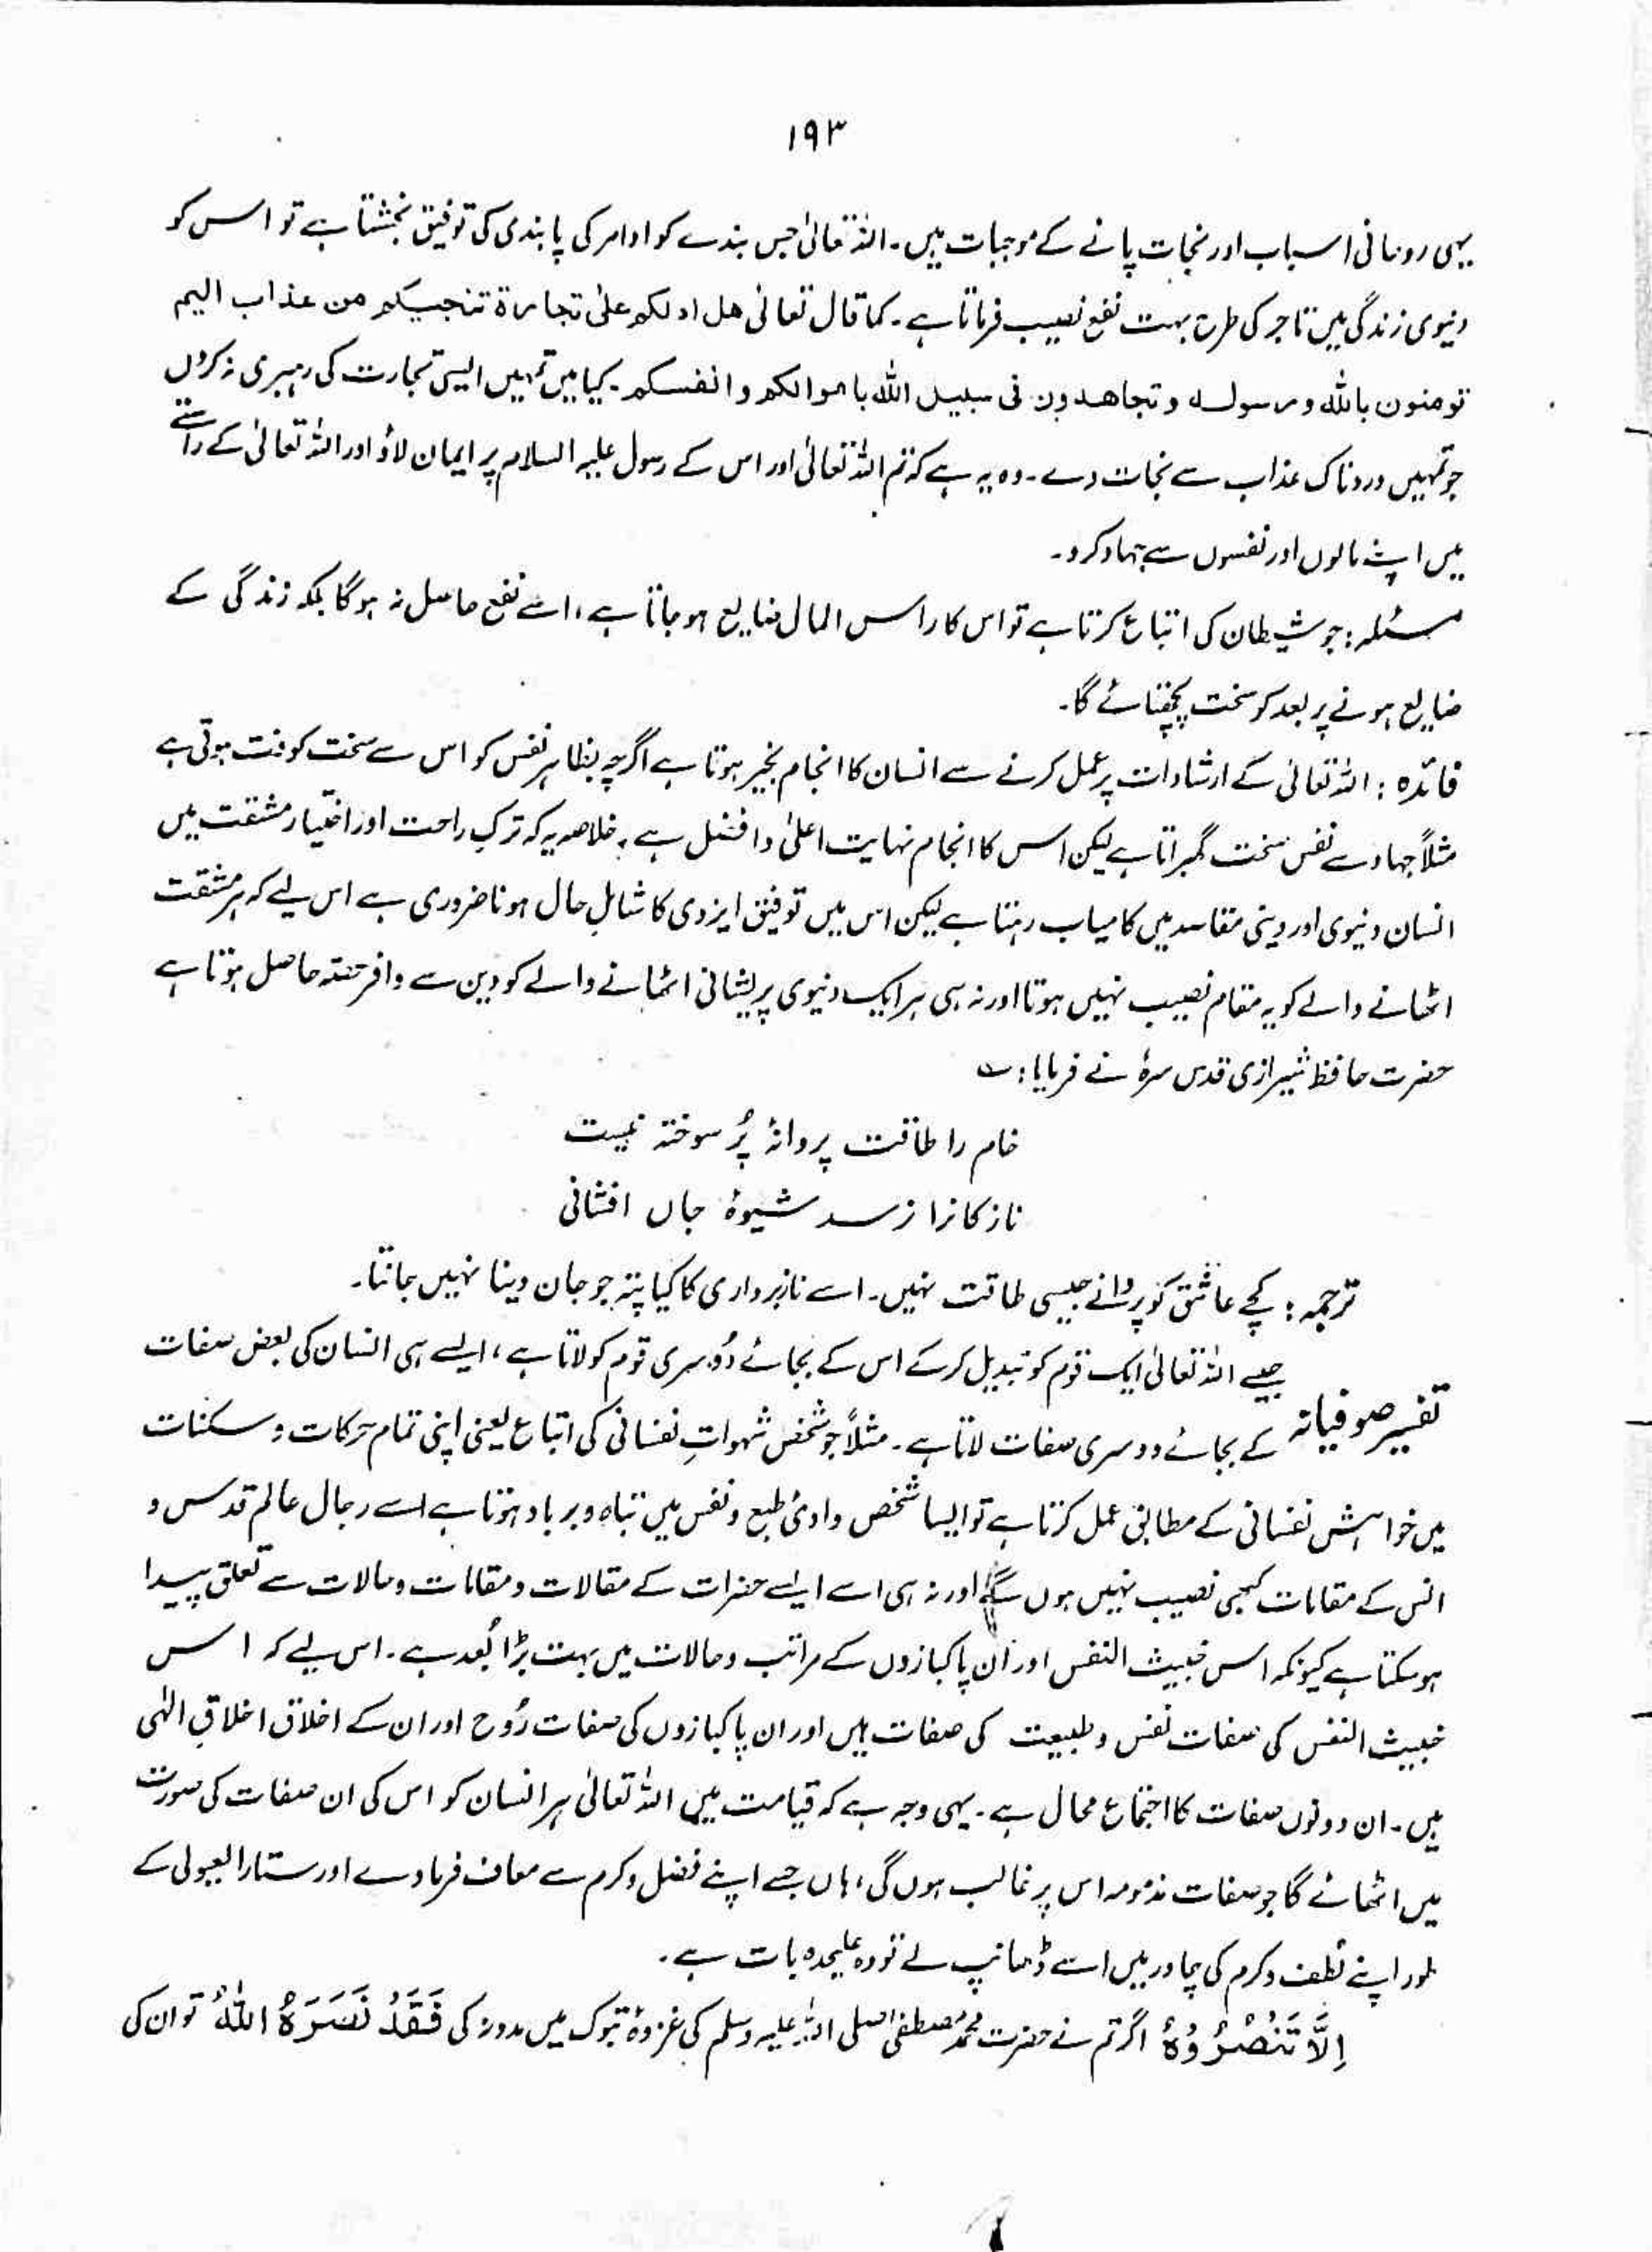 ۱۹۳
یہی روحانی اسباب اور نجات پانے کے موجبات ہیں۔ اللہ تعالیٰ جس بندے کو اوامر کی پابندی کی توفیق بخشتا ہے تو اس کو
دنیوی زندگی میں تاجر کی طرح بہت نفع نصیب فرماتا ہے۔ کما قال تعالیٰ ھل ادلکم علیٰ تجارۃ تنجیکم من عذاب الیم
تومنون باللہ ورسولہ وتجاھدون فی سبیل اللہ باموالکم وانفسکم۔ کیا میں تمہیں ایسی تجارت کی رہبری نہ کروں
جو تمہیں دردناک عذاب سے نجات دے۔ وہ یہ ہے کہ تم اللہ تعالیٰ اور اس کے رسول علیہ السلام پر ایمان لاؤ اور اللہ تعالیٰ کے راستے
میں اپنے مالوں اور نفسوں سے جہاد کرو۔
مسئلہ: جو شیطان کی اتباع کرتا ہے تو اس کا راس المال ضایع ہو جاتا ہے، اسے نفع حاصل نہ ہوگا بلکہ زندگی کے
ضایع ہونے پر بعد کو سخت پچھتائے گا۔
فائدہ: اللہ تعالیٰ کے ارشادات پر عمل کرنے سے انسان کا انجام بخیر ہوتا ہے اگرچہ بظاہر نفس کو اس سے سخت کوفت ہوتی ہے
مثلاً جہاد سے نفس سخت گھبراتا ہے لیکن اس کا انجام نہایت اعلیٰ و افضل ہے۔ خلاصہ یہ کہ ترک راحت اور اختیار مشقت میں
انسان دنیوی اور دینی مقاصد میں کامیاب رہتا ہے لیکن اس میں توفیق ایزدی کا شاملِ حال ہونا ضروری ہے اس لیے کہ ہر مشقت
اٹھانے والے کو یہ مقام نصیب نہیں ہوتا اور نہ ہی ہر ایک دنیوی پریشانی اٹھانے والے کو دین سے وافر حصّہ حاصل ہوتا ہے
حضرت حافظ شیرازی قدس سرہٗ نے فرمایا: ؎
خام را طاقت پروانۂ پُر سوختہ نیست
نازکانرا نرسد شیوۂ جاں افشانی
ترجمہ: کچے عاشق کو پروانے جیسی طاقت نہیں۔ اسے نازبرداری کا کیا پتہ جو جان دینا نہیں جانتا۔
تفسیر صوفیانہ جیسے اللہ تعالیٰ ایک قوم کو تبدیل کرکے اس کے بجائے دُوسری قوم کو لاتا ہے، ایسے ہی انسان کی بعض صفات
کے بجائے دوسری صفات لاتا ہے۔ مثلاً جو شخص شہواتِ نفسانی کی اتباع یعنی اپنی تمام حرکات و سکنات
میں خواہش نفسانی کے مطابق عمل کرتا ہے تو ایسا شخص وادیٔ طبع و نفس میں تباہ و برباد ہوتا ہے اسے رجال عالم قدس و
انس کے مقامات کبھی نصیب نہیں ہوں گے اور نہ ہی اسے ایسے حضرات کے مقالات و مقامات و حالات سے تعلق پیدا
ہو سکتا ہے کیونکہ اس خبیث النفس اور ان پاکبازوں کے مراتب و حالات میں بہت بڑا بُعد ہے۔ اس لیے کہ اس
خبیث النفس کی صفات نفس و طبیعت کی صفات ہیں اور ان پاکبازوں کی صفات رُوح اور ان کے اخلاق اخلاقِ الٰہی
ہیں۔ ان دونوں صفات کا اجتماع محال ہے۔ یہی وجہ ہے کہ قیامت میں اللہ تعالیٰ ہر انسان کو اس کی ان صفات کی صورت
میں اٹھائے گا جو صفات مذمومہ اس پر غالب ہوں گی، ہاں جسے اپنے فضل و کرم سے معاف فرمادے اور ستار العیوبی کے
طور اپنے لُطف و کرم کی چادر میں اسے ڈھانپ لے تو وہ علیحدہ بات ہے۔
اِلَّا تَنْصُرُوْہُ اگر تم نے حضرت محمد مصطفیٰ صلی اللہ علیہ وسلم کی غزوۂ تبوک میں مدد نہ کی فَقَدْ نَصَرَہُ اللّٰہُ تو ان کی